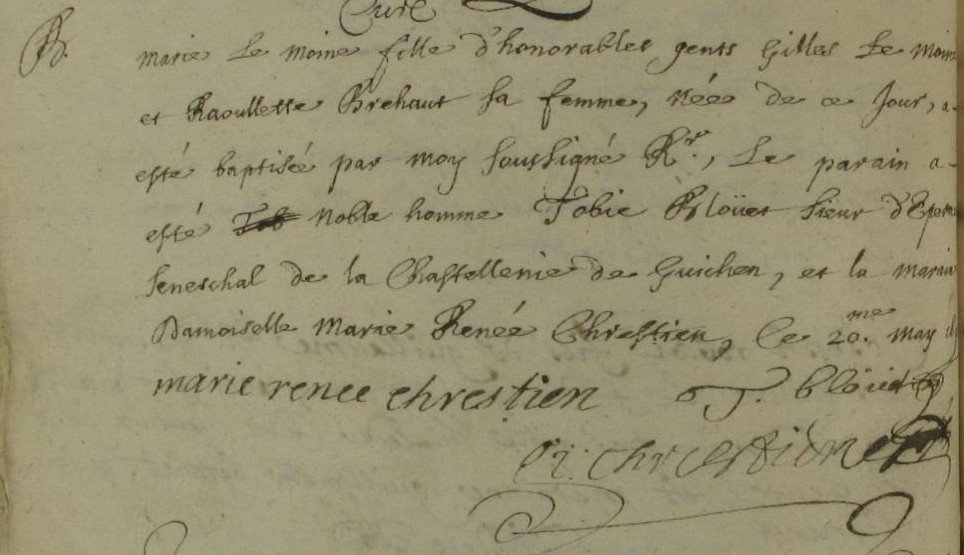 Curé
B. marie Le Moine fille d'honorables gents Gilles Le Moine
et Raoullette Brehaut sa femme, née de ce Jour, a-
esté baptisée par moy soussigné Rr., Le parain a-
esté Tob Noble homme Tobie Bloüet sieur d'Epern
seneschal de la Chastellenie de Guichen, et la marain
Damoiselle Marie Renée Chrestien, le 20.me May
marie renee chrestien T. bloüet
chrestien